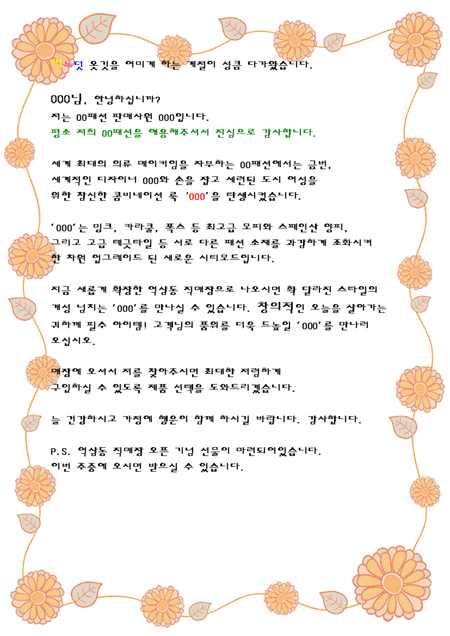 어느덧 옷깃을 여미게 하는 계절이 성큼 다가왔습니다.
OOO님, 안녕하십니까?
저는 OO패션 판매사원 OOO입니다.
평소 저희 OO패션을 애용해주셔서 진심으로 감사합니다.
세계 최대의 의류 메이커임을 자부하는 OO패션에서는 금번,
세계적인 디자이너 OOO와 손을 잡고 세련된 도시 여성을
위한 참신한 콤비네이션 룩 'OOO'을 탄생시켰습니다.
'OOO'는 밍크, 카라쿨, 폭스 등 최고급 모피와 스페인산 양피,
그리고 고급 테크타일 등 서로 다른 패션 소재를 과감하게 조화시켜
한 차원 업그레이드 된 새로운 시티모드입니다.
지금 새롭게 확장한 역삼동 직매장으로 나오시면 확 달라진 스타일의
개성 넘치는 'OOO'를 만나실 수 있습니다. 창의적인 오늘을 살아가는
귀하께 필수 아이템! 고객님의 품위를 더욱 드높일 'OOO'를 만나러
오십시오.
매장에 오셔서 저를 찾아주시면 최대한 저렴하게
구입하실 수 있도록 제품 선택을 도와드리겠습니다.
늘 건강하시고 가정에 행운이 함께 하시길 바랍니다. 감사합니다.
P.S. 역삼동 직매장 오픈 기념 선물이 마련되어있습니다.
이번 주중에 오시면 받으실 수 있습니다.